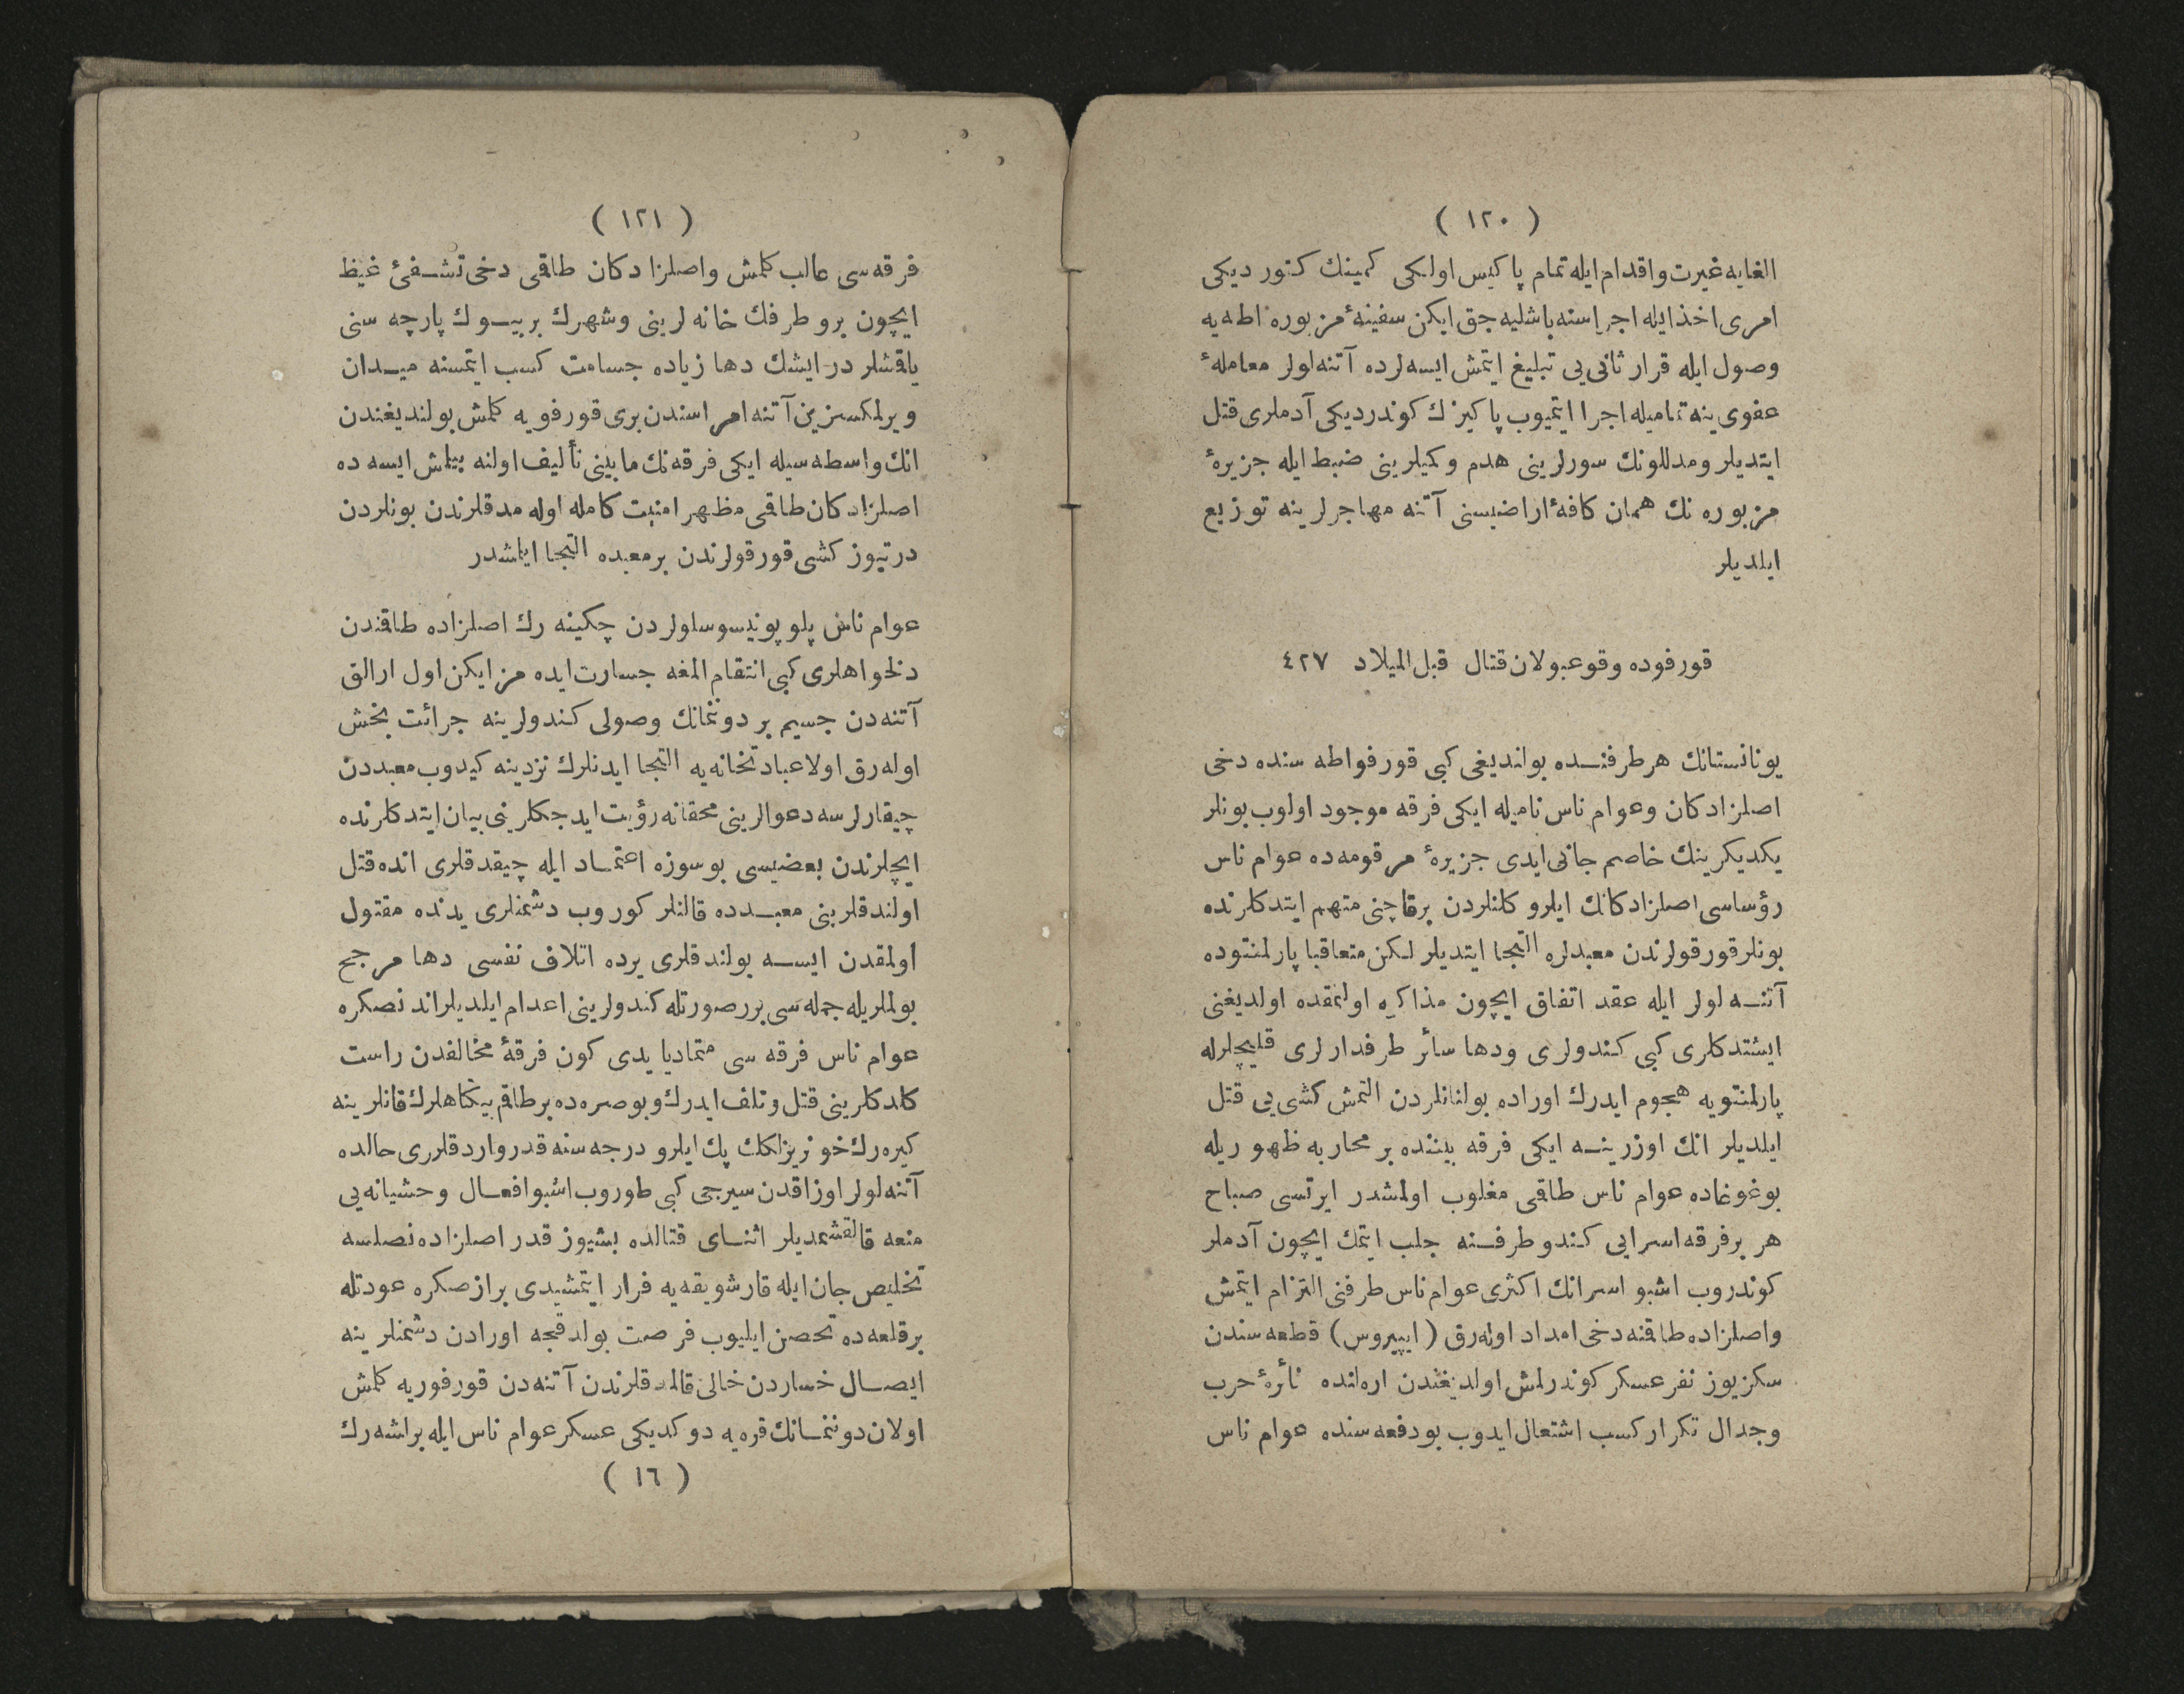 ( ١٢٠ )
الغایه غیرت واقدام ایله تمام پاکیس اولکی کمینك کتور دیکی
امری اخذ ایله اجراسنه باشلیه جق ایکن سفینهٔ مزبوره اطه یه
وصول ایله قرار ثانی یی تبلیغ ایتمش ایسه لرده آتنه لولر معاملهٔ
عفوی ینه تمامیله اجرا ایتمیوب پاکیزك کوندردیکی آدملری قتل
ایتدیلر ومدللونك سورلرینی هدم وکمیلرینی ضبط ایله جزیرهٔ
مزبوره نك همان کافهٔ اراضیسنی آتنه مهاجرلرینه توزیع
ایلدیلر
قورفوده وقوعبولان قتال قبل المیلاد ٤٢٧
یونانستانك هر طرفنده بولندیغی کبی قورفواطه سنده دخی
اصلزادکان وعوام ناس نامیله ایکی فرقه موجود اولوب بونلر
یکدیکرینك خاصم جانی ایدی جزیرهٔ مرقومه ده عوام ناس
رؤساسی اصلزادکانك ایلرو کلنلردن برقاچنی متهم ایتدکلرنده
بونلر قورقولرندن معبدلره التجا ایتدیلر لکن متعاقبا پارلمنتوده
آتنه لولر ایله عقد اتفاق ایچون مذاکره اولنمقده اولدیغنی
ایشتدکلری کبی کندولری ودها سائر طرفدارلری قلیچلرله
پارلمنتویه هجوم ایدرك اوراده بولنانلردن التمش کشی یی قتل
ایلدیلر انك اوزرینه ایکی فرقه بیننده بر محاربه ظهوریله
بوغوغاده عوام ناس طاقمی مغلوب اولمشدر ایرتسی صباح
هر برفرقه اسرایی کندو طرفنه جلب ایتمك ایچون آدملر
کوندروب اشبو اسرانك اکثری عوام ناس طرفنی التزام ایتمش
واصلزاده طاقنه دخی امداد اوله رق (ایپیروس) قطعه سندن
سکزیوز نفر عسکر کوندرلمش اولدیغندن اره لنده نائرهٔ حرب
وجدال تکرار کسب اشتعال ایدوب بودفعه سنده عوام ناس
( ١٢١ )
فرقه سی غالب کلمش واصلزادکان طاقمی دخی تشفئ غیظ
ایچون برو طرفك خانه لرینی وشهرك بر بیوك پارچه سنی
یاقمشلر در ایشك دها زیاده جسامت کسب ایتمسنه میدان
ویرلمکسزین آتنه امراسندن بری قورفویه کلمش بولندیغندن
انك واسطه سیله ایکی فرقه نك مابینی تألیف اولنه بیلمش ایسه ده
اصلزادکان طاقمی مظهر امنیت کامله اوله مدقلرندن بونلردن
درتیوز کشی قورقولرندن برمعبده التجا ایلمشدر
عوام ناس پلوپونیسوسلولردن چکینه رك اصلزاده طاقندن
دلخواهلری کبی انتقام المغه جسارت ایده مز ایکن اول ارالق
آتنه دن جسیم بر دوننمانك وصولی کندولرینه جرائت بخش
اوله رق اولا عبادتخانه یه التجا ایدنلرك نزدینه کیدوب معبددن
چیقارلرسه دعوالرینی محقانه رؤیت ایدجکلرینی بیان ایتدکلرنده
ایچلرندن بعضیسی بوسوزه اعتماد ایله چیقدقلری انده قتل
اولندقلرینی معبدده قالنلر کوروب دشمنلری یدنده مقتول
اولمقدن ایسه بولندقلری یرده اتلاف نفسی دها مرجح
بولملریله جمله سی بررصورتله کندولرینی اعدام ایلدیلر اندنصکره
عوام ناس فرقه سی متمادیا یدی کون فرقهٔ مخالفدن راست
کلدکلرینی قتل وتلف ایدرك وبو صره ده برطاقم بیکناهلرك قانلرینه
کیره رك خونریزلکك پك ایلرو درجه سنه قدر واردقلری حالده
آتنه لولر اوزاقدن سیرجی کبی طوروب اشبو افعال وحشیانه یی
منعه قالقشمدیلر اثنای قتالده بشیوز قدر اصلزاده نصلسه
تخلیص جان ایله قارشویقه یه فرار ایتمشیدی برازصکره عودتله
برقلعه ده تحصن ایلیوب فرصت بولدقجه اورادن دشمنلرینه
ایصال خساردن خالی قالمدقلرندن آتنه دن قورفوریه کلمش
اولان دوننمانك قره یه دوکدیکی عسکر عوام ناس ایله براشه رك
( ١٦ )